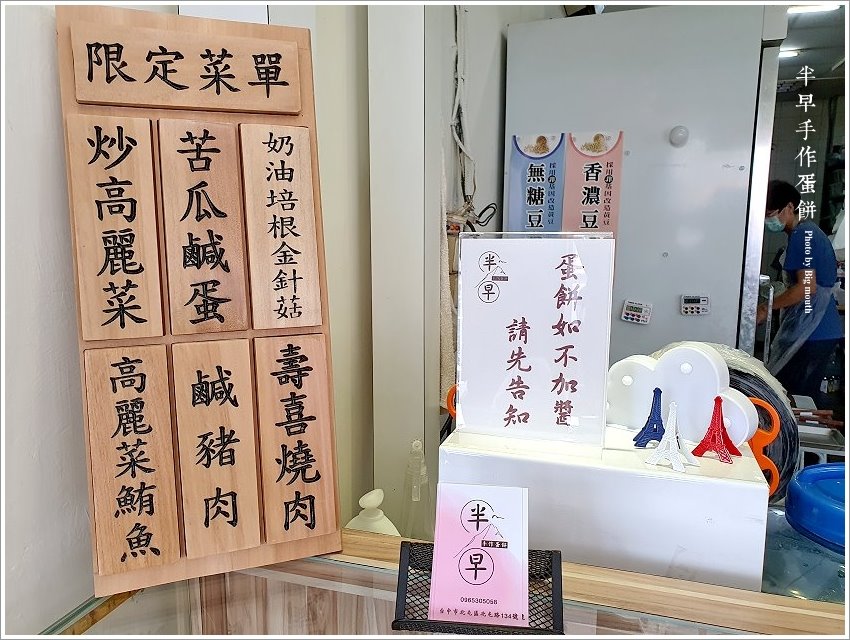 限定菜單
奶油培根金針菇
苦瓜鹹蛋
炒高麗菜
壽喜燒肉
鹹豬肉
高麗菜鮪魚
採用非基因改造黃豆
無糖豆
採用非基因改造黃豆
香濃豆
半早
蛋餅如不加醬
請先告知
半早
手作蛋餅
0965305058
台中市北屯區北屯路134號
半早手作蛋餅
Photo by Big mouth